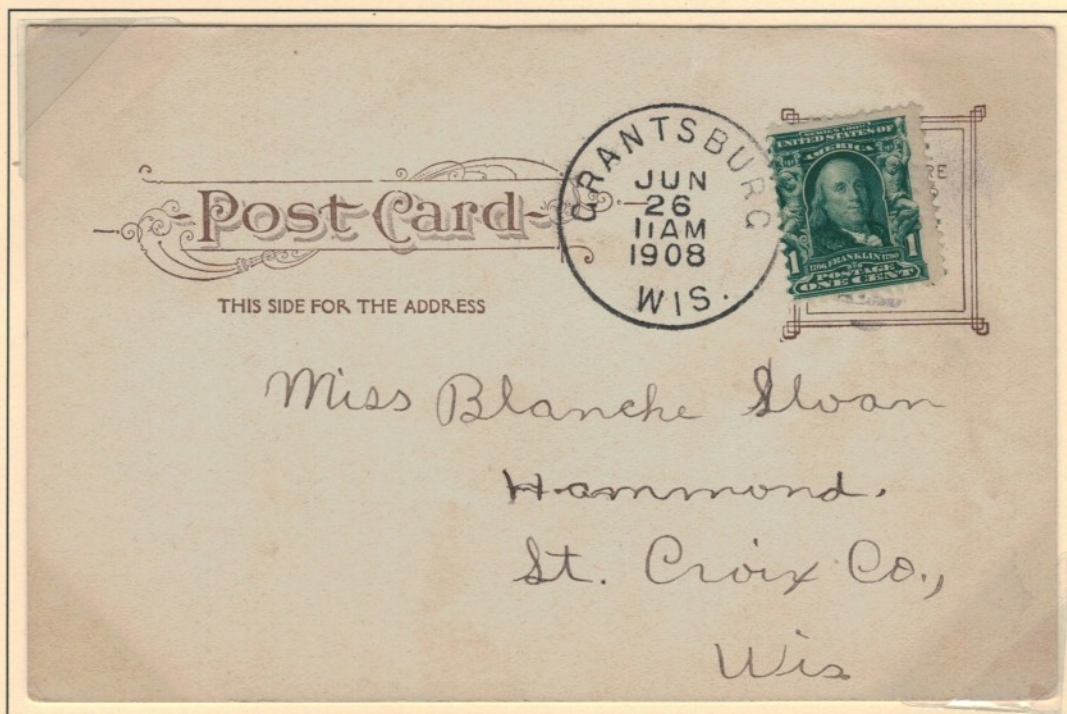 Post Card
THIS SIDE FOR THE ADDRESS
GRANTSBURG
JUN
26
11AM
1908
WIS.
SERIES 1902
UNITED STATES OF
AMERICA
1706 FRANKLIN 1790
1 1
POSTAGE
ONE CENT
Miss Blanche Sloan
Hammond.
St. Croix Co.,
Wis